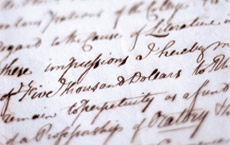 of the College
regard to the Cause of Literature
these impressions I hereby
of Five Thousand Dollars to
remain to perpetuity as a fund
of a Professorship of Oratory